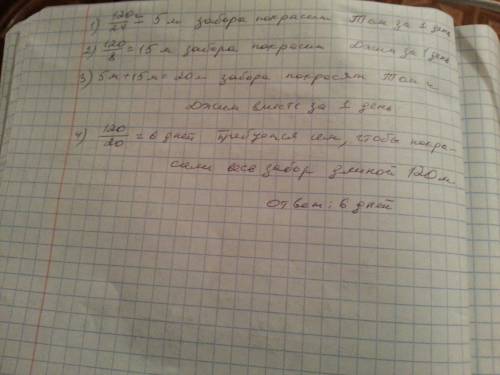 1) 120/24 = 5 м забора покрасит Том за 1 день
2) 120/8 = 15 м забора покрасит Джим за 1 день
3) 5м+15м=20м забора покрасят Том и
Джим вместе за 1 день
4) 120/20 = 6 дней требуется им, чтобы покра-
сили весь забор длиной 120м
ответ: 6 дней